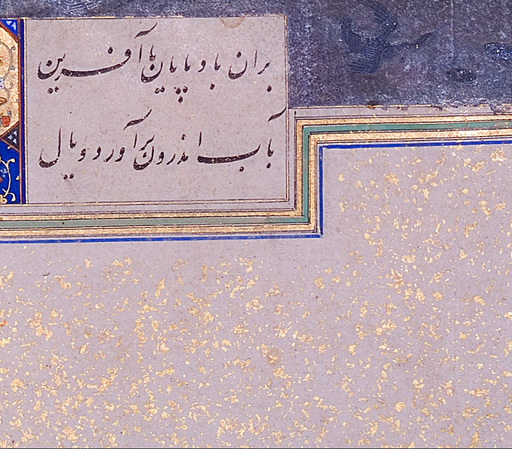 بران باد پایان با آفرین
بآب اندرون بر آورد و یال